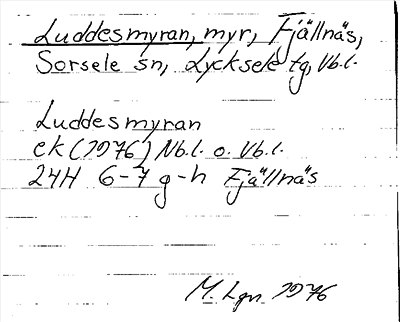 Luddesmyran, myr, Fjällnäs,
Sorsele sn, Lycksele tg, Vb.l.
Luddesmyran
ek (1976) Nb.l. o. Vb.l.
24H 6-7 g-h Fjällnäs
M. Lgn. 1976